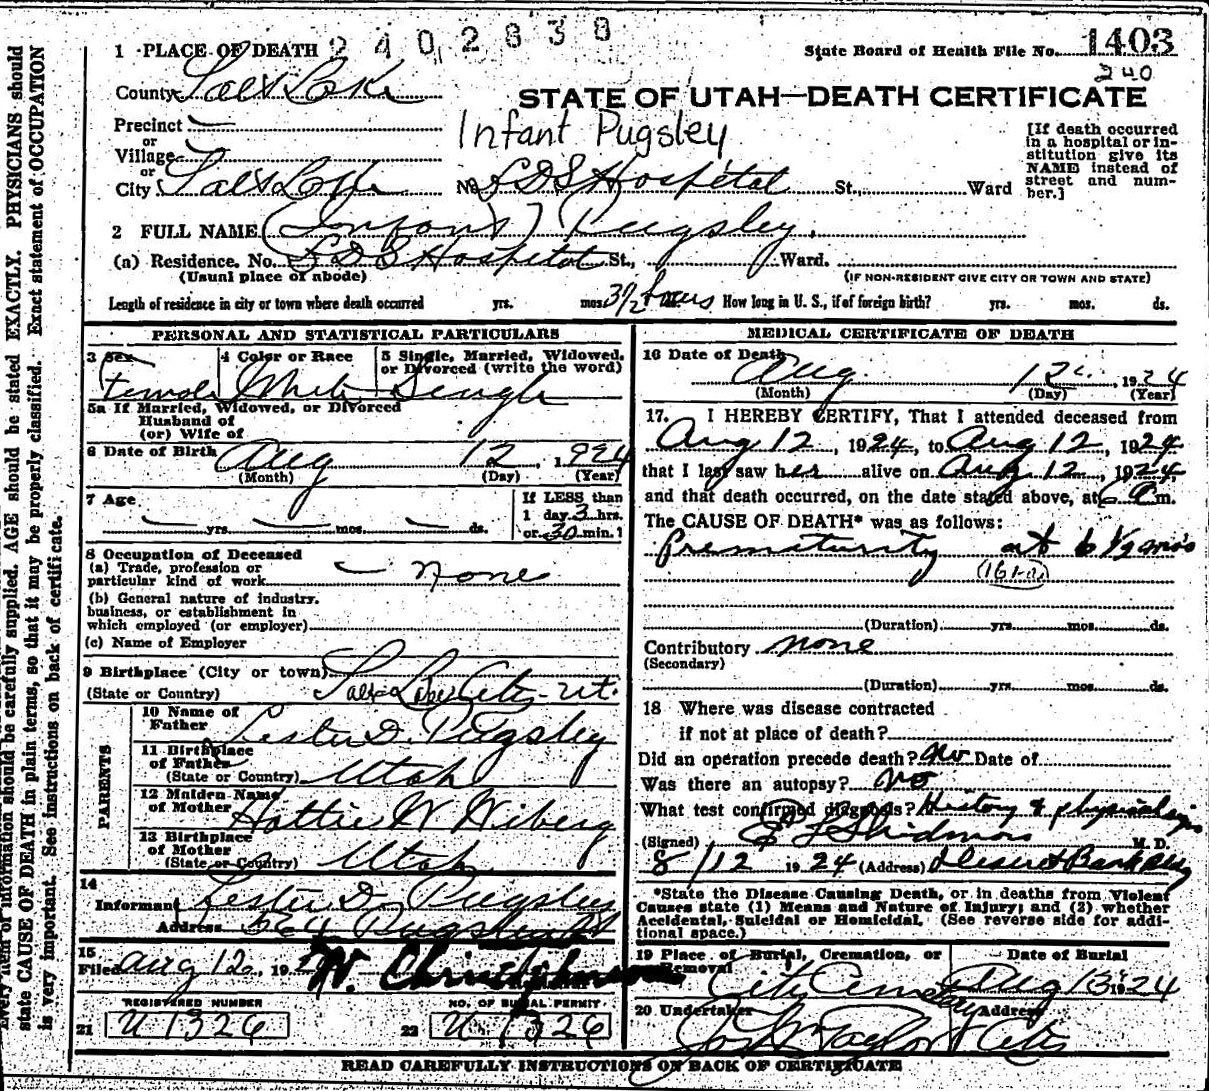 2402838
1 PLACE OF DEATH
State Board of Health File No. 1403
240
County Salt Lake
STATE OF UTAH—DEATH CERTIFICATE
Precinct
or
Village
or
City Salt Lake No. LDS Hospital St., Ward
Infant Pugsley
[If death occurred
in a hospital or in-
stitution give its
NAME instead of
street and num-
ber.]
2 FULL NAME (Infant) Pugsley.
(a) Residence. No. LDS Hospital St., Ward.
(Usual place of abode) (IF NON-RESIDENT GIVE CITY OR TOWN AND STATE)
Length of residence in city or town where death occurred yrs. mos. 3 1/2 hours How long in U. S., if of foreign birth? yrs. mos. ds.
PERSONAL AND STATISTICAL PARTICULARS
3 Sex 4 Color or Race 5 Single, Married, Widowed,
or Divorced (write the word)
Female White Single
5a If Married, Widowed, or Divorced
Husband of
(or) Wife of
6 Date of Birth Aug 12, 1924
(Month) (Day) (Year)
7 Age If LESS than
1 day 3 hrs.
yrs. mos. ds. or 30 min.
8 Occupation of Deceased
(a) Trade, profession or
particular kind of work none
(b) General nature of industry,
business, or establishment in
which employed (or employer)
(c) Name of Employer
9 Birthplace (City or town)
(State or Country) Salt Lake City - Ut.
PARENTS
10 Name of
Father Lester D. Pugsley
11 Birthplace
of Father
(State or Country) Utah
12 Maiden Name
of Mother Hattie W Wiberg
13 Birthplace
of Mother
(State or Country) Utah
14
Informant Lester D. Pugsley
Address 564 Pugsley St
15
Filed Aug 12, 192 W. Christopherson
REGISTERED NUMBER NO. OF BURIAL PERMIT.
21 U 1326 22 U 1326
MEDICAL CERTIFICATE OF DEATH
16 Date of Death Aug. 12, 1924
(Month) (Day) (Year)
17. I HEREBY CERTIFY, That I attended deceased from
Aug 12, 1924, to Aug 12, 1924
that I last saw her alive on Aug 12, 1924,
and that death occurred, on the date stated above, at 6 P m.
The CAUSE OF DEATH* was as follows:
Prematurity at 6 1/2 mo's
(161-a)
(Duration) yrs. mos. ds.
Contributory none
(Secondary)
(Duration) yrs. mos. ds.
18 Where was disease contracted
if not at place of death?
Did an operation precede death? no Date of
Was there an autopsy? no
What test confirmed diagnosis? History & physical signs
(Signed) M. D.
8/12 1924 (Address) Deseret Bank Bldg
*State the Disease Causing Death, or in deaths from Violent
Causes state (1) Means and Nature of Injury; and (2) whether
Accidental, Suicidal or Homicidal. (See reverse side for addi-
tional space.)
19 Place of Burial, Cremation, or Date of Burial
Removal
City Cemetery Aug 13 1924
20 Undertaker Address
Jos Wm Taylor City
READ CAREFULLY INSTRUCTIONS ON BACK OF CERTIFICATE
Every item of information should be carefully supplied. AGE should be stated EXACTLY. PHYSICIANS should
state CAUSE OF DEATH in plain terms, so that it may be properly classified. Exact statement of OCCUPATION
is very important. See instructions on back of certificate.